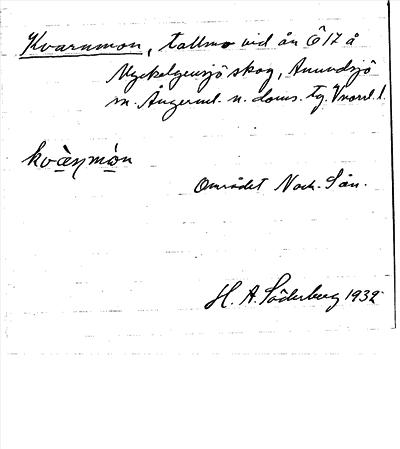 Kvarnmon, tallmo vid ån Ö 17 å
Myckelgensjö skog, Anundsjö
sn. Ångerml. n. doms. tg. Vnorrl. l.
kvàꞑmón
Området Nach. Sån.
H. A. Söderberg 1932